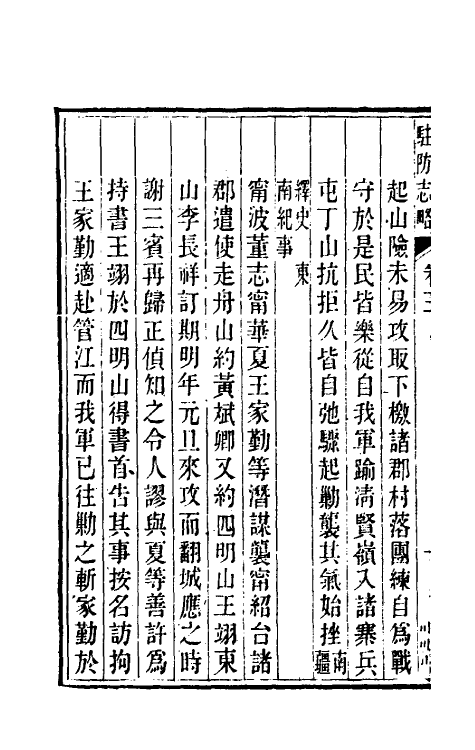 駐防志略 卷三
起山險未易攻取下檄諸郡村落團練自爲戰
守於是民皆樂從自我軍踰淸賢嶺入諸寨兵
屯丁山抗拒久皆自弛驟起勦襲其氣始挫南疆
繹史 東南紀事
甯波董志甯華夏王家勤等潛謀襲甯紹台諸
郡遣使走舟山約黃斌卿又約四明山王翊東
山李長祥訂期明年元旦來攻而翻城應之時
謝三賓再歸正偵知之令人謬與夏等善許爲
持書王翊於四明山得書首告其事按名訪拘
王家勤適赴管江而我軍已往勦之斬家勤於